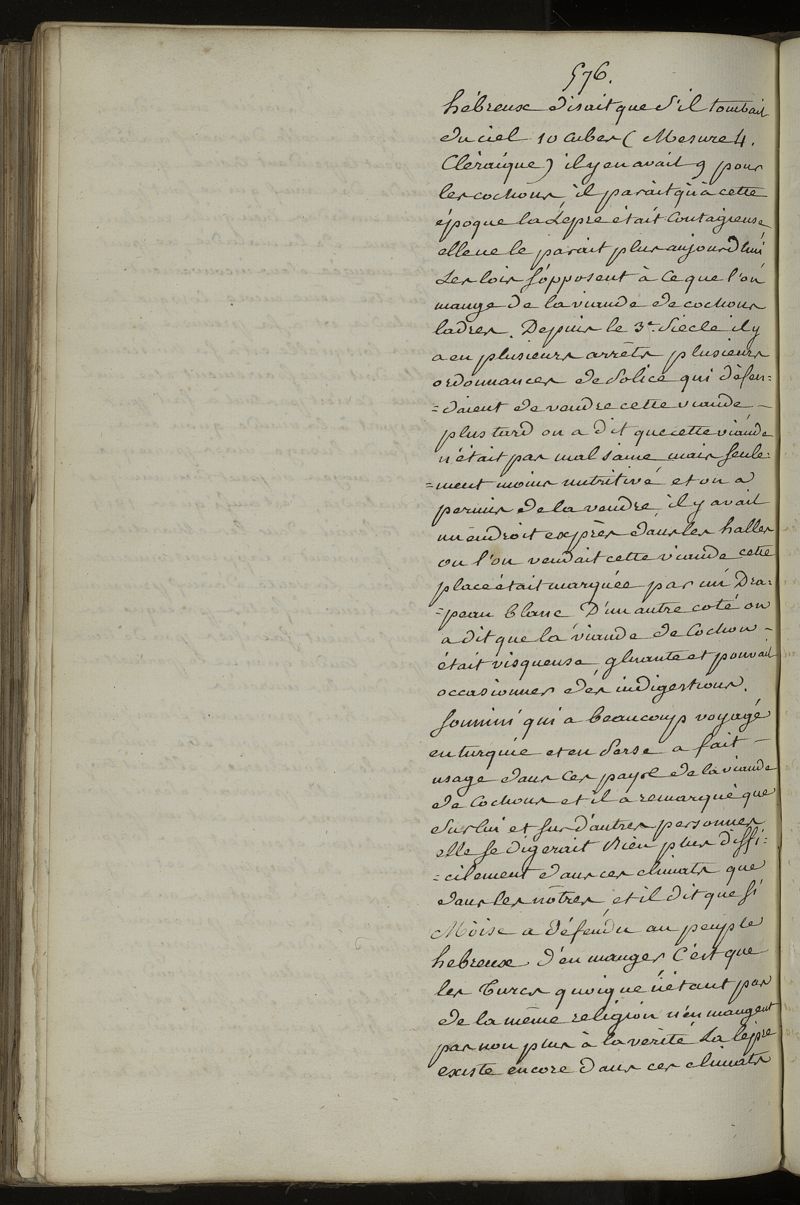 576.
hébreuse disait que s'il tombait
du ciel 10 cabes ( Mesure 4.
) il y en avait 9 pour
les cochons, il parait qu'à cette
époque la Lépre était Contagieuse
elle ne le parait plus aujourd'hui
Les lois s'opposent à ce que l'on
mange de la viande de cochons
ladres. Depuis le 3e. Siècle il y
a eu plusieurs arrêts plusieurs
ordonnances de Police qui défen=
=daient de vendre cette viande —
plus turd on a dit que cette viande
n'était pas mal saine mais seule=
=ment moins nutritive et on a
permis de la vendre, il y avait
un endroit exprès dans les halles
ou l'on vendait cette viande cette
place était marquée par un Dra=
=peau blanc D'un autre coté on
a dit que la viande de Cochon —
était visqueuse, gluante et pouvait
occasionner dés indigestions.
Sonnini qui a beaucoup voyagé
en turquie et en Perse a fait —
usage dans ces pays de la viande
de Cochons et il a remarqué que
sur lui et sur d'autres personnes
elle se digerait bien plus diffi=
=cilement dans ces climats que
dans les nôtres et il dit que si
Moïse a défendu au peuple
hebreux d'en manger C'est que
les Turcs quoique n'étant pas
de la même religion n'en mangent
pas non plus à la vérité La lèpre
existe encore dans ces climats